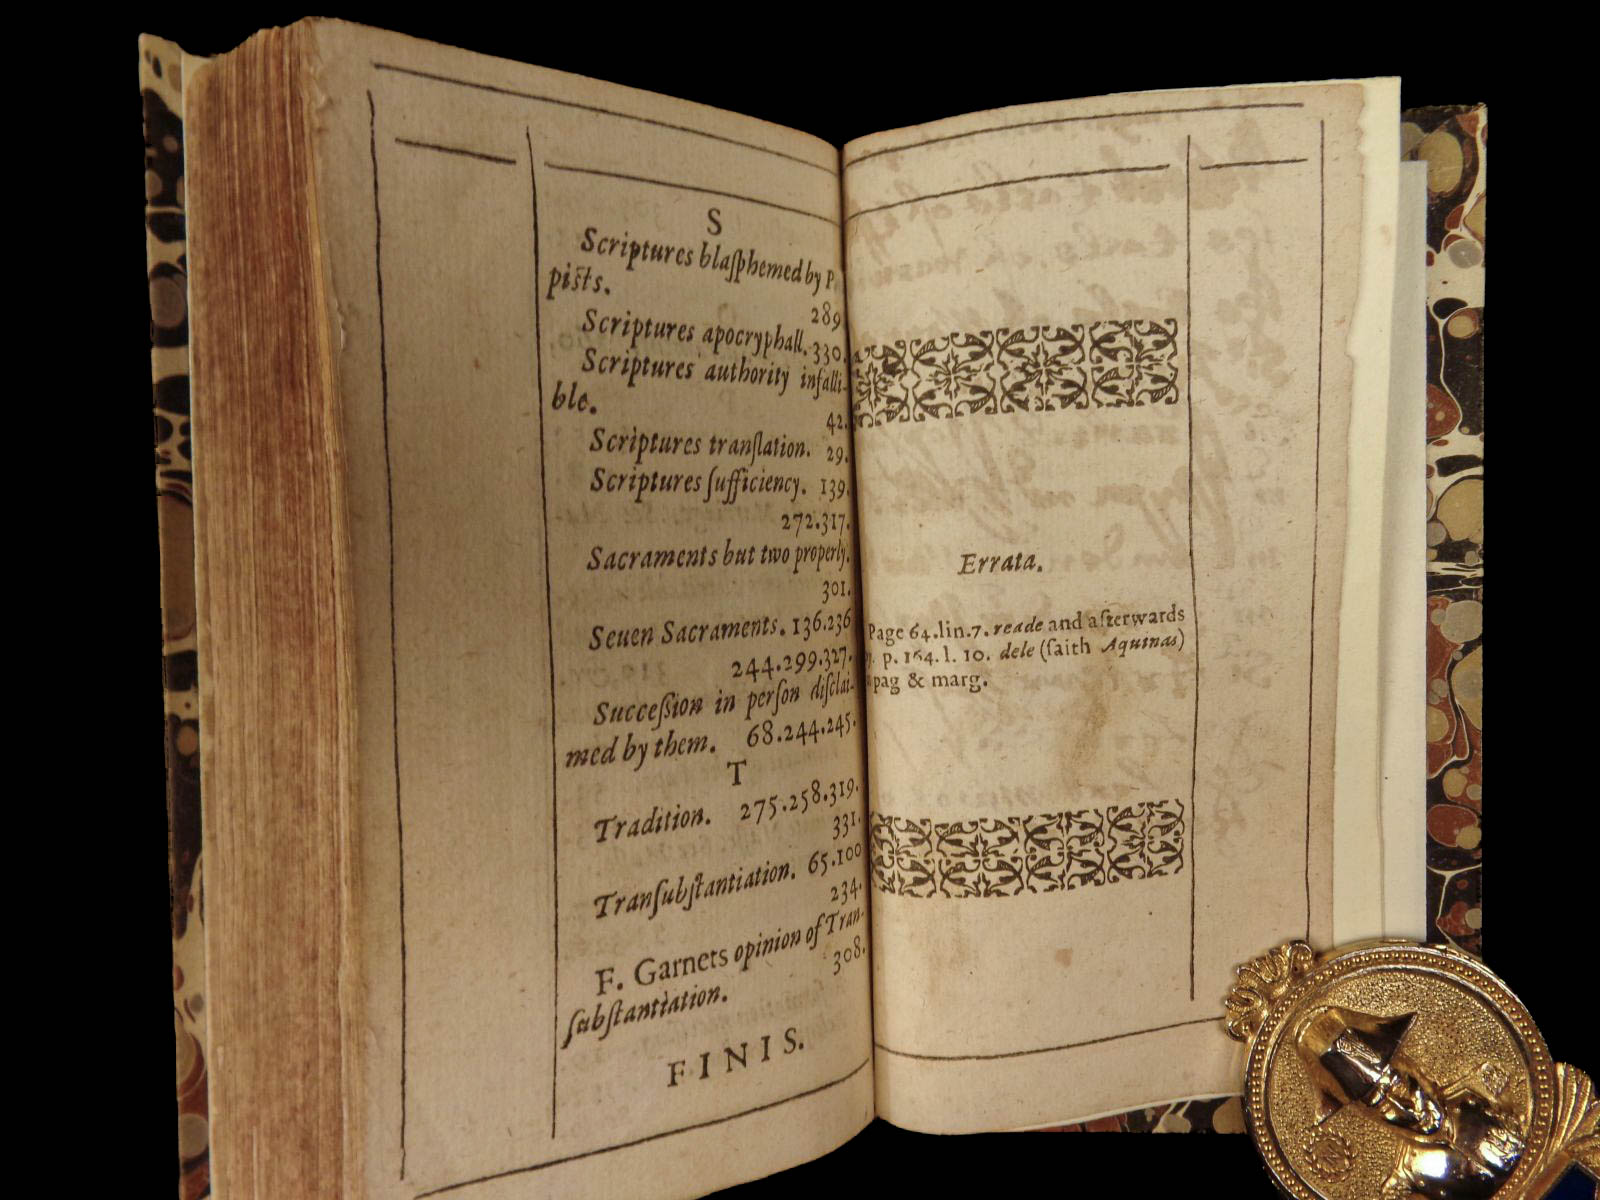 S
Scriptures blaſphemed by P
piſts.
289
Scriptures apocryphall. 330.
Scriptures authority infalli-
ble.
42.
Scriptures tranſlation. 29.
Scriptures ſufficiency. 139.
272.317.
Sacraments but two properly.
301.
Seuen Sacraments. 136.236
244.299.327.
Succeſsion in perſon diſclai-
med by them. 68.244.245.
T
Tradition. 275.258.319.
331.
Tranſubſtantiation. 65.100
234.
F. Garnets opinion of Tran-
ſubſtantiation. 308.
FINIS.
Errata.
Page 64.lin.7. reade and afterwards
p. 164. l. 10. dele (ſaith Aquinas)
pag & marg.